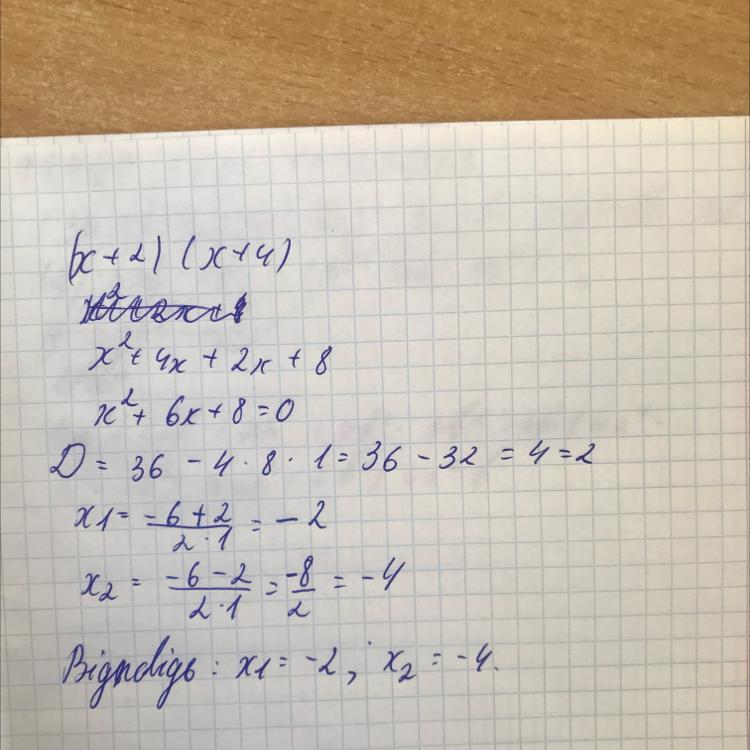 (x+2) (x+4)
x²+4x+2x+8
x²+6x+8=0
D = 36 - 4·8·1 = 36 - 32 = 4 = 2
x1 = \frac{-6+2}{2·1} = -2
x₂ = \frac{-6-2}{2·1} = \frac{-8}{2} = -4
Відповідь: x1 = -2; x₂ = -4.